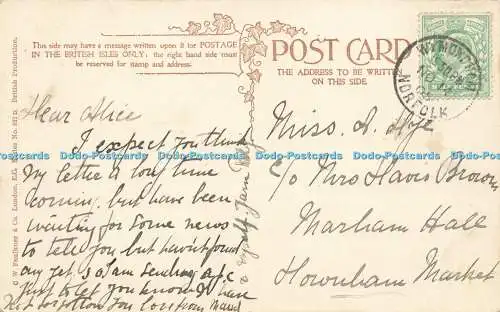 This side may have a message written upon it for POSTAGE
IN THE BRITISH ISLES ONLY; the right hand side must
be reserved for stamp and address.
POST CARD
THE ADDRESS TO BE WRITTEN
ON THIS SIDE.
WYMONDHAM
NORFOLK
C. W. Faulkner & Co. London, E.C. Series No. British Production.
Dear Alice
I expect you think
my letter a long time
coming, but have been
waiting for some news
to tell you but havent found
any yet, so I am sending a p.c
just to let you know I have
not forgotten you love from Maud
Miss. A.
c/o Mrs Havers Brown
Marham Hall
Downham Market
Dado Postcards Dado Postcards Dado Postcards Dado Postcards Dado Postcards Dado Postcards